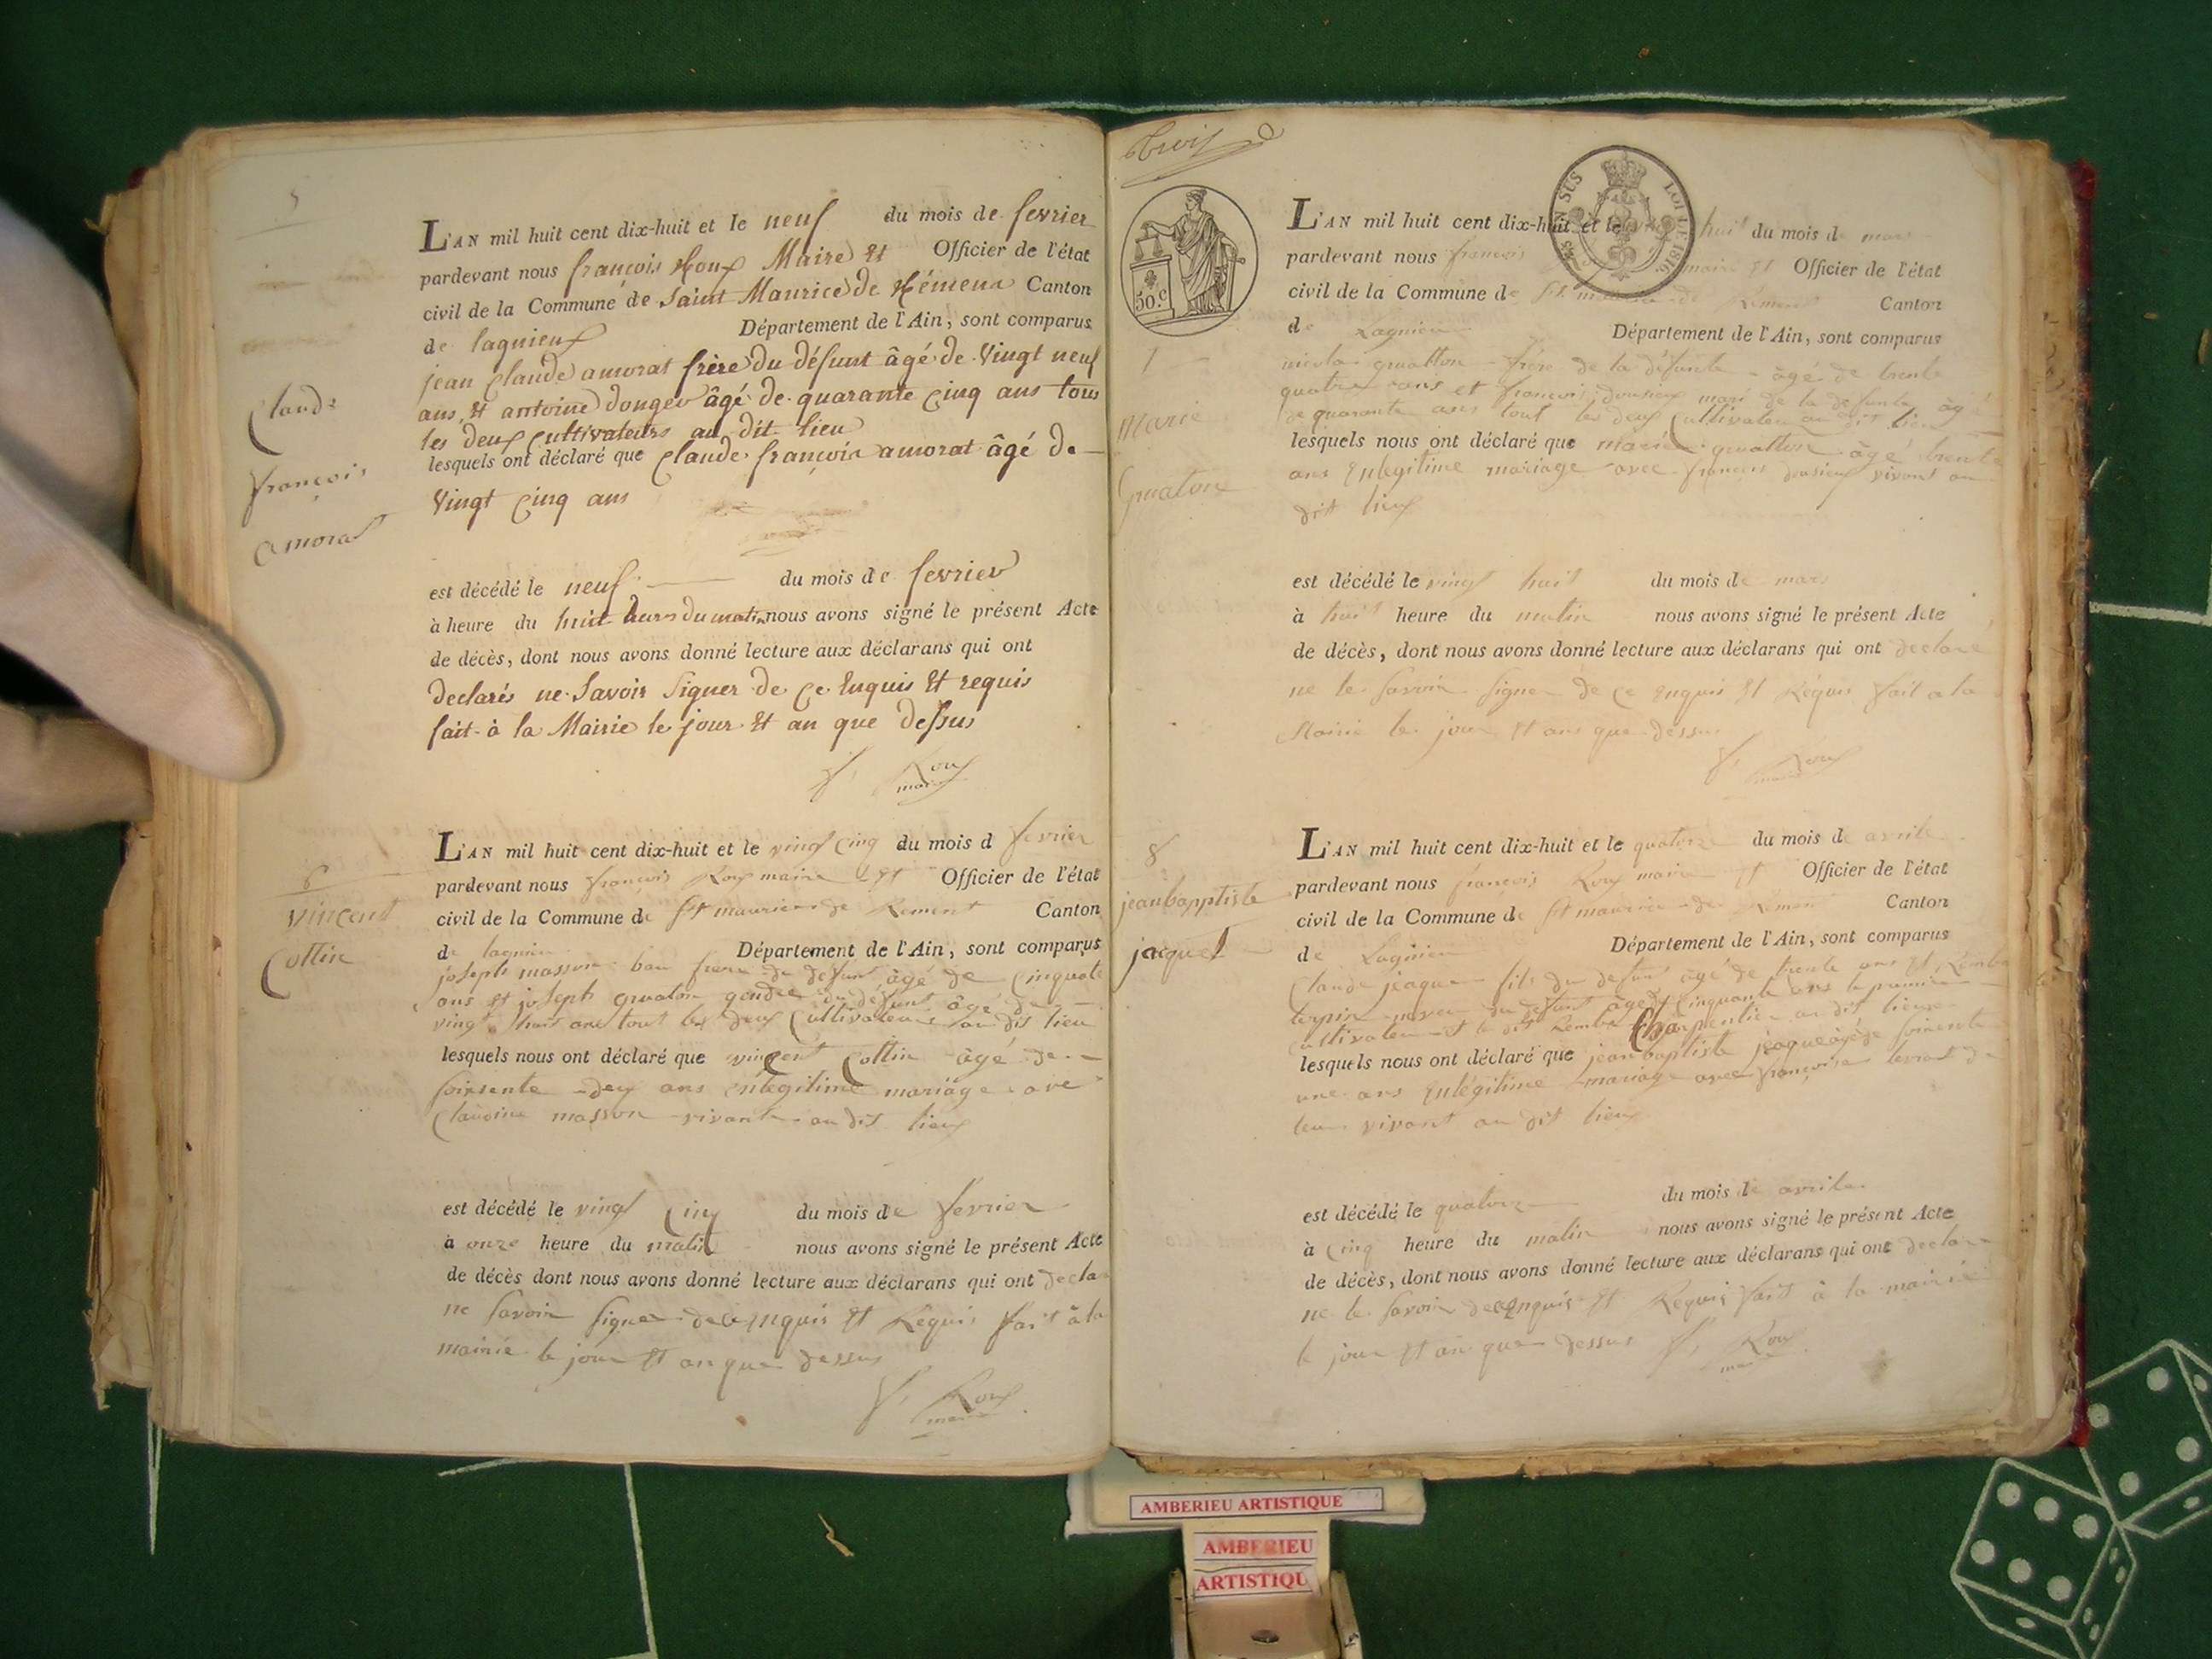 5
Claude
François
amorat
L'AN mil huit cent dix-huit et le neuf du mois de fevrier
pardevant nous françois Roux Maire Et Officier de l'état
civil de la Commune de Saint Maurice de Rémens Canton
de lagnieux Département de l'Ain, sont comparus
jean Claude amorat frère du défunt âgé de Vingt neuf
ans, Et antoine donger âgé de quarante Cinq ans tous
les deux Cultivateurs au dit lieu
lesquels ont déclaré que Claude françois amorat âgé de
Vingt Cinq ans
est décédé le neuf du mois de fevrier
à heure du huit heures du matin nous avons signé le présent Acte
de décès, dont nous avons donné lecture aux déclarans qui ont
declarés ne Savoir Signer de Ce Enquis Et requis
fait à la Mairie le jour Et an que dessus
f. Roux
maire
6
vincent
Collin
L'AN mil huit cent dix-huit et le vingt Cinq du mois d fevrier
pardevant nous françois Roux maire Et Officier de l'état
civil de la Commune de St maurice de Remens Canton
de lagnieu Département de l'Ain, sont comparus
joseph masson bau frere du defunt âgé de Cinquate
ans et joseph gruaton gendre du défunt âgé de
vingt huit ans tout les deux Cultivateurs au dit lieu
lesquels nous ont déclaré que vincent Collin âgé de
soixsente deux ans enlegitime mariage ave
Claudine masson vivante au dit lieux
est décédé le vingt Cinq du mois de fevrier
à onze heure du matin nous avons signé le présent Acte
de décès dont nous avons donné lecture aux déclarans qui ont decla
ne Savoir signer de ce enquis Et Requis fait à la
mairie le jour Et an que dessus
f. Roux
maire
trois
50.c
EN SUS
LOI DE 1816
7
Marie
Gruaton
L'AN mil huit cent dix-huit et le huit du mois de mars
pardevant nous françois maire Et Officier de l'état
civil de la Commune de St maurice de Rémens Canton
de Lagnieu Département de l'Ain, sont comparus
nicolas gruatton frére de la défunte âgé de trente
quatre ans et françois mari de la defunte âgé
de quarante ans tout les deux Cultivateur au dit lieu
lesquels nous ont déclaré que marie gruatton âgé trente
ans Enlegitime mariage avec françois vivant au
dit lieux
est décédé le vingt huit du mois de mars
à huit heure du matin nous avons signé le présent Acte
de décès, dont nous avons donné lecture aux déclarans qui ont declaré
ne le savoir signer de ce enquis Et Réquis fait a la
Mairie le jour Et ans que dessus
f. Roux
maire
8
jeanbapptiste
jacquet
L'AN mil huit cent dix-huit et le quatorze du mois de avrile
pardevant nous françois Roux maire Et Officier de l'état
civil de la Commune de St maurice de Rémens Canton
de Lagnieu Département de l'Ain, sont comparus
Claude jéaque fils du defunt âgé de trente ans Et
du defunt âgé de Cinquante ans le premier
Cultivateur et le dit Charpentier au dit lieux
lesquels nous ont déclaré que jean baptiste jéaque âgé de soixsente
une ans Enlégitime mariage avec françoise
vivant au dit lieux
est décédé le quatorze du mois de avrile
à Cinq heure du matin nous avons signé le présent Acte
de décès, dont nous avons donné lecture aux déclarans qui ont declare
ne le savoir de ce enquis Et Requis fait à la mairie
le jour Et an que dessus f. Roux
maire
AMBERIEU ARTISTIQUE
AMBERIEU
ARTISTIQU